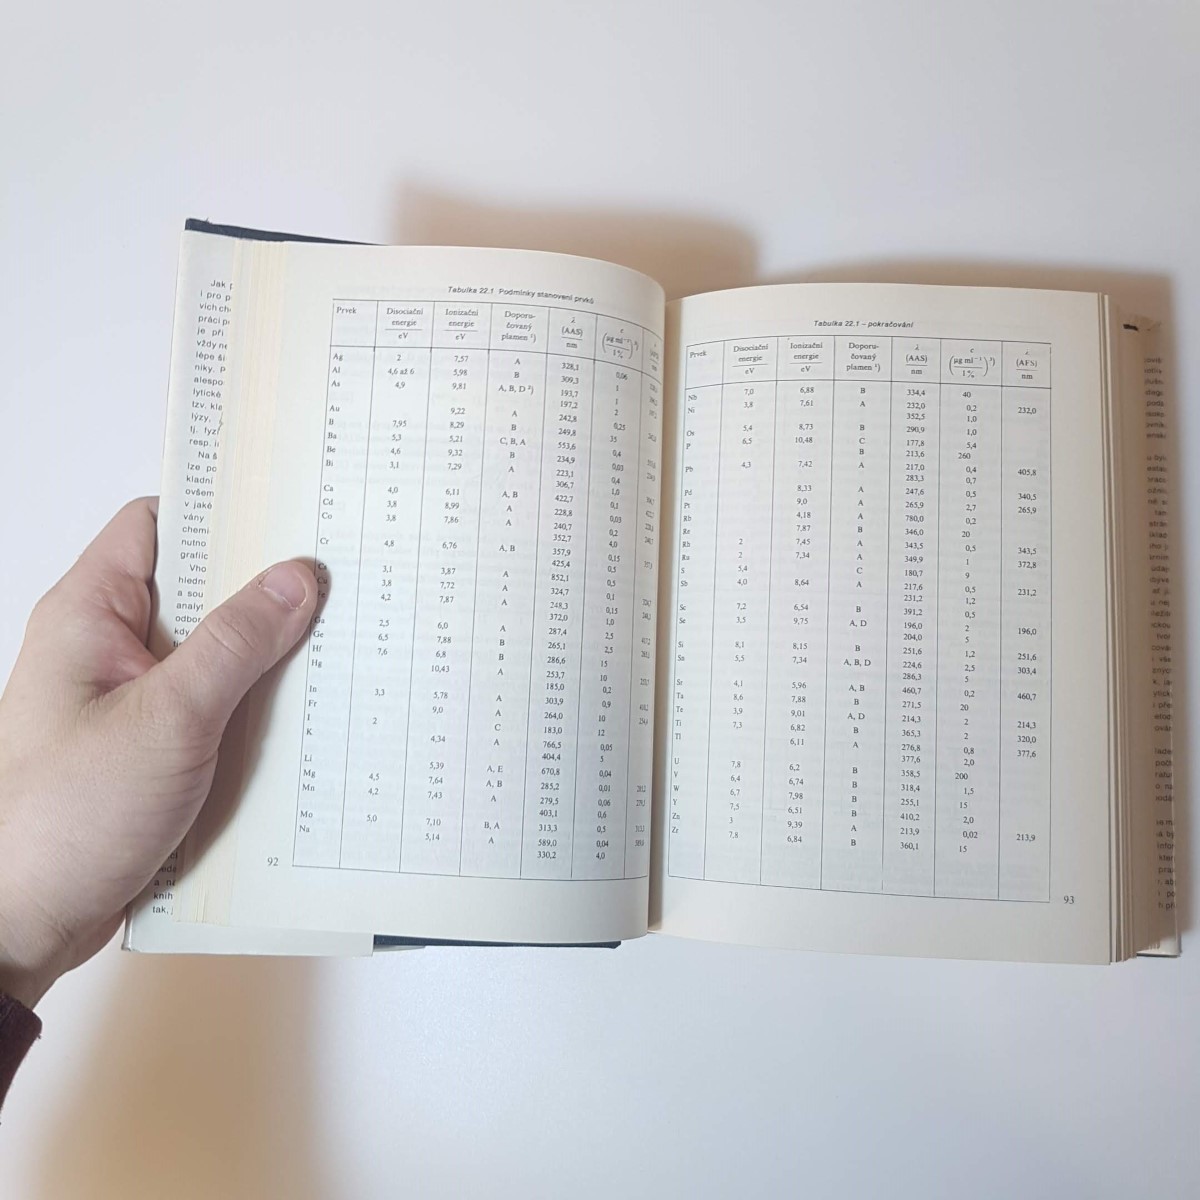 Jak
i pro p
vích ch
práci p
je při
vždy ne
lépe ši
niky. P
alespo
lytické
tzv. kla
lýzy,
tj. fyz
resp. i
Na š
lze po
kladní
ovšem
v jaké
vány
chemi
nutno
grafic
Vho
hledn
a sou
analyt
odbor
kdy
a ne
knih
tak,
Tabulka 22.1 Podmínky stanovení prvků
Prvek Disociační energie eV Ionizační energie eV Doporu-čovaný plamen ¹) λ (AAS) nm c (µg ml⁻¹ / 1 %) ³)
Ag 2 7,57 A 328,1 0,06
Al 4,6 až 6 5,98 B 309,3 1
As 4,9 9,81 A, B, D ²) 193,7 1
197,2 2
Au 9,22 A 242,8 0,25
B 7,95 8,29 B 249,8 15
Ba 5,3 5,21 C, B, A 553,6 0,4
Be 4,6 9,32 B 234,9 0,03
Bi 3,1 7,29 A 223,1 0,4
306,7 1,0
Ca 4,0 6,11 A, B 422,7 0,1
Cd 3,8 8,99 A 228,8 0,03
Co 3,8 7,86 A 240,7 0,2
352,7 4,0
Cr 4,8 6,76 A, B 357,9 0,15
425,4 0,5
3,1 3,87 A 852,1 0,5
3,8 7,72 A 324,7 0,1
4,2 7,87 A 248,3 0,15
372,0 1,0
Ga 2,5 6,0 A 287,4 2,5
Ge 6,5 7,88 B 265,1 2,5
Hf 7,6 6,8 B 286,6 15
Hg 10,43 A 253,7 10
185,0 0,2
In 3,3 5,78 A 303,9 0,9
Fr 9,0 A 264,0 10
I 2 C 183,0 12
K 4,34 A 766,5 0,05
404,4 5
Li 5,39 A, E 670,8 0,04
Mg 4,5 7,64 A, B 285,2 0,01
Mn 4,2 7,43 A 279,5 0,06
403,1 0,6
Mo 5,0 7,10 B, A 313,3 0,5
Na 5,14 A 589,0 0,04
330,2 4,0
92
Tabulka 22.1 – pokračování
Prvek Disociační energie eV Ionizační energie eV Doporu-čovaný plamen ¹) λ (AAS) nm c (µg ml⁻¹ / 1 %) ³) λ (AFS) nm
Nb 7,0 6,88 B 334,4 40
Ni 3,8 7,61 A 232,0 0,2 232,0
352,5 1,0
Os 5,4 8,73 B 290,9 1,0
P 6,5 10,48 C 177,8 5,4
B 213,6 260
Pb 4,3 7,42 A 217,0 0,4 405,8
283,3 0,7
Pd 8,33 A 247,6 0,5 340,5
Pt 9,0 A 265,9 2,7 265,9
Rb 4,18 A 780,0 0,2
Re 7,87 B 346,0 20
Rh 2 7,45 A 343,5 0,5 343,5
Ru 2 7,34 A 349,9 1 372,8
S 5,4 C 180,7 9
Sb 4,0 8,64 A 217,6 0,5 231,2
231,2 1,2
Sc 7,2 6,54 B 391,2 0,5
Se 3,5 9,75 A, D 196,0 2 196,0
204,0 5
Si 8,1 8,15 B 251,6 1,2 251,6
Sn 5,5 7,34 A, B, D 224,6 2,5 303,4
286,3 5
Sr 4,1 5,96 A, B 460,7 0,2 460,7
Ta 8,6 7,88 B 271,5 20
Te 3,9 9,01 A, D 214,3 2 214,3
Ti 7,3 6,82 B 365,3 2 320,0
Tl 6,11 A 276,8 0,8 377,6
377,6 2,0
U 7,8 6,2 B 358,5 200
V 6,4 6,74 B 318,4 1,5
W 6,7 7,98 B 255,1 15
Y 7,5 6,51 B 410,2 2,0
Zn 3 9,39 A 213,9 0,02 213,9
Zr 7,8 6,84 B 360,1 15
93